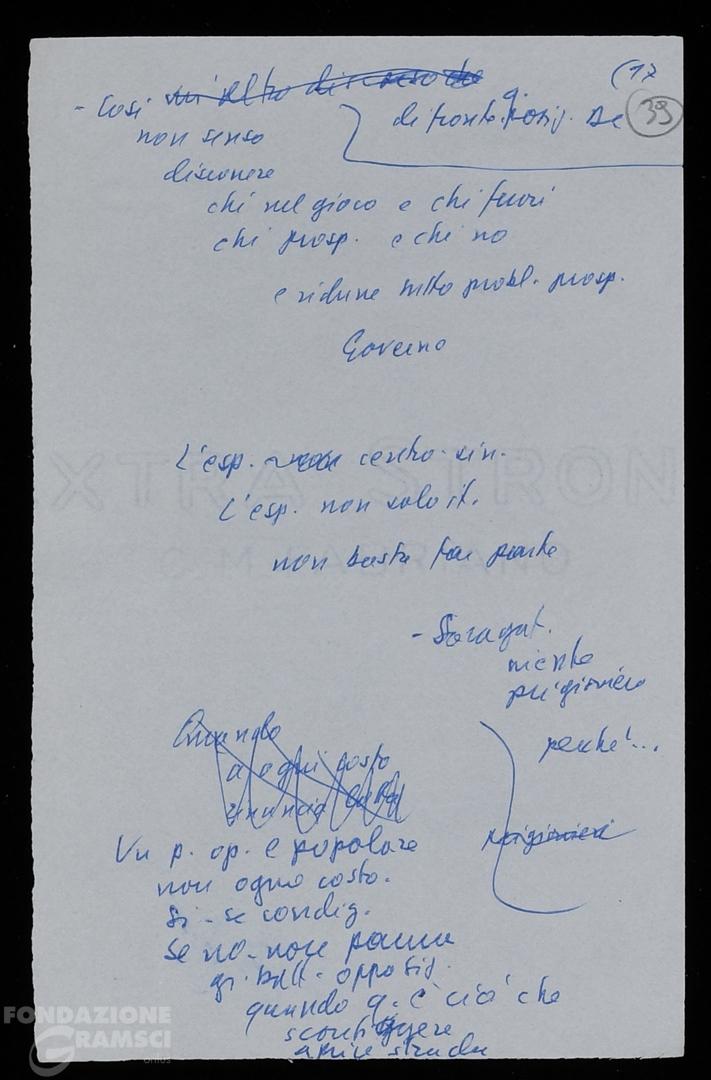 (17
39
- Così ~~un'altro discorso che~~
di fronte a posiz. Dc
non senso
discorrere
chi nel gioco e chi fuori
chi prosp. e chi no
e ridurre tutto probl. prosp.
Governo
L'esp. centro-sin.
L'esp. non solo it.
non basta far parte
- Saragat.
niente
prigioniero
perché...
~~Quando~~
~~a ogni costo~~
~~rinuncia~~
~~prigionieri~~
Un p. op. e popolare
non ogni costo.
Sì - se condiz.
Se no - non paura
gr. batt. opposiz.
quando q. è ciò che
sconfiggere
aprire strada
EXTRA STRONG
FONDAZIONE
GRAMSCI
onlus